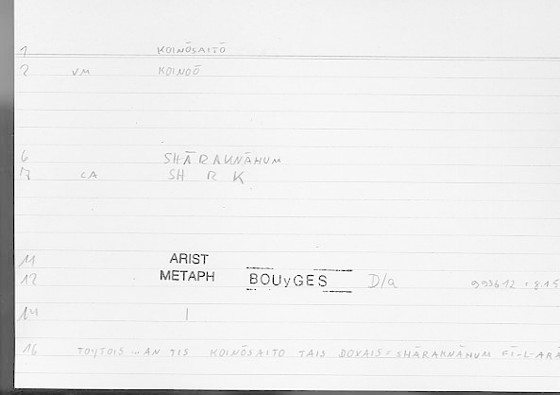 1 KOINŌSAITŌ
2 VM KOINOŌ
6 SHĀRAKNĀHUM
7 CA SH R K
11 ARIST
12 METAPH BOUyGES D/a 993b12 : 8.15
14 |
16 TOYTOIS ... AN TIS KOINŌSAITO TAIS DOXAIS = SHĀRAKNĀHUM FĪ-L-ARĀ